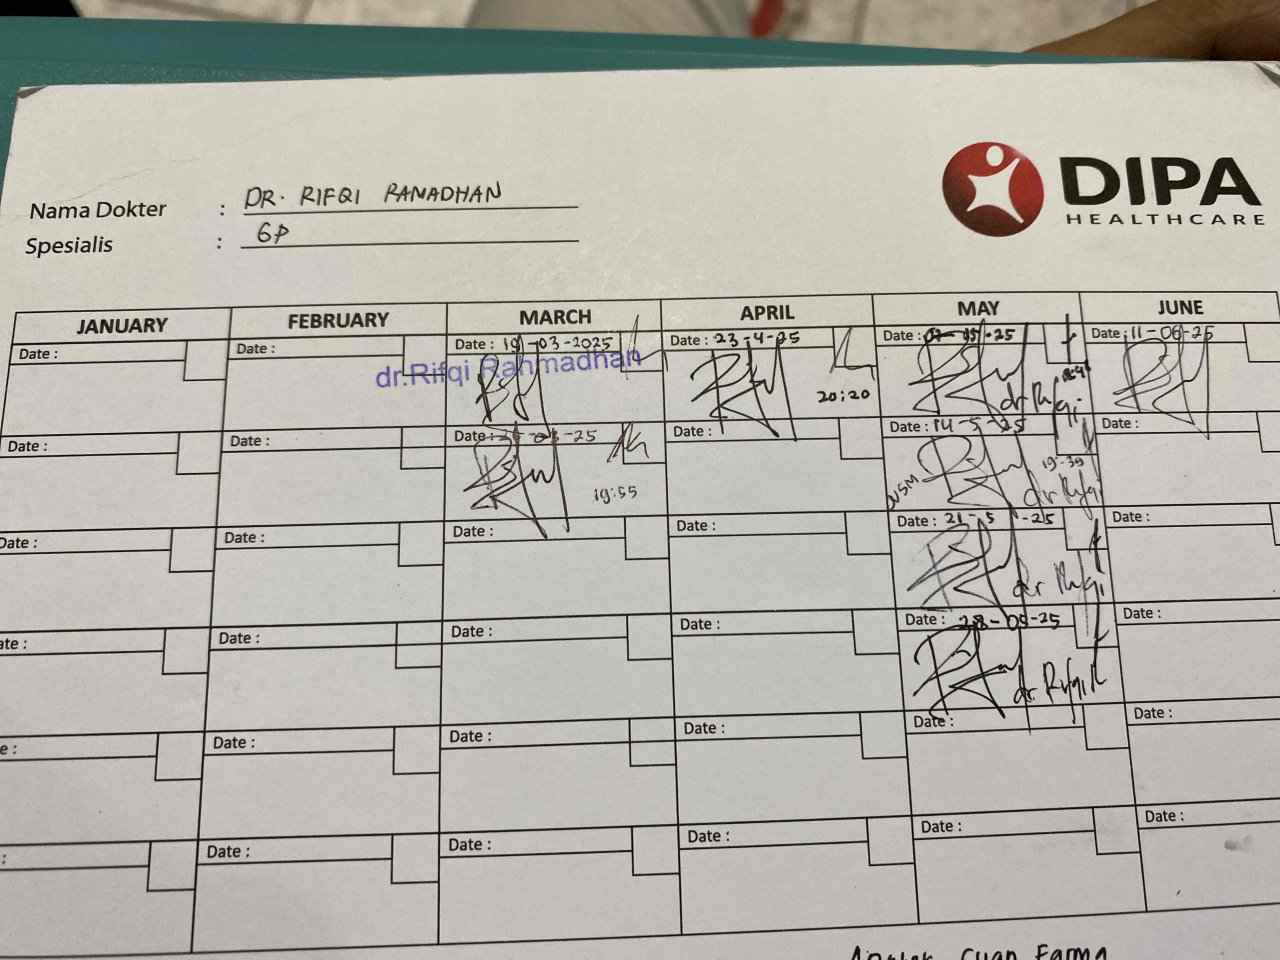 DIPA
HEALTHCARE
Nama Dokter : DR. RIFQI RAMADHAN
Spesialis : GP
JANUARY FEBRUARY MARCH APRIL MAY JUNE
Date : Date : Date : 19-03-2025 Date : 23-4-25 Date : -05-25 Date : 11-06-25
dr.Rifqi Rahmadhan
20:20 dr Rifqi
Date : Date : Date : -03-25 Date : Date : 14-5-25 Date :
19:55 19-39 dr Rifqi
Date : Date : Date : Date : Date : 21-5-25 Date :
dr Rifqi
ate : Date : Date : Date : Date : 28-05-25 Date :
dr. Rifqi
e : Date : Date : Date : Date : Date :
: Date : Date : Date : Date : Date :
Cuan Farma